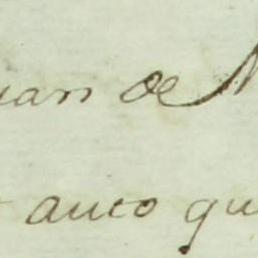 uan de
auto qu